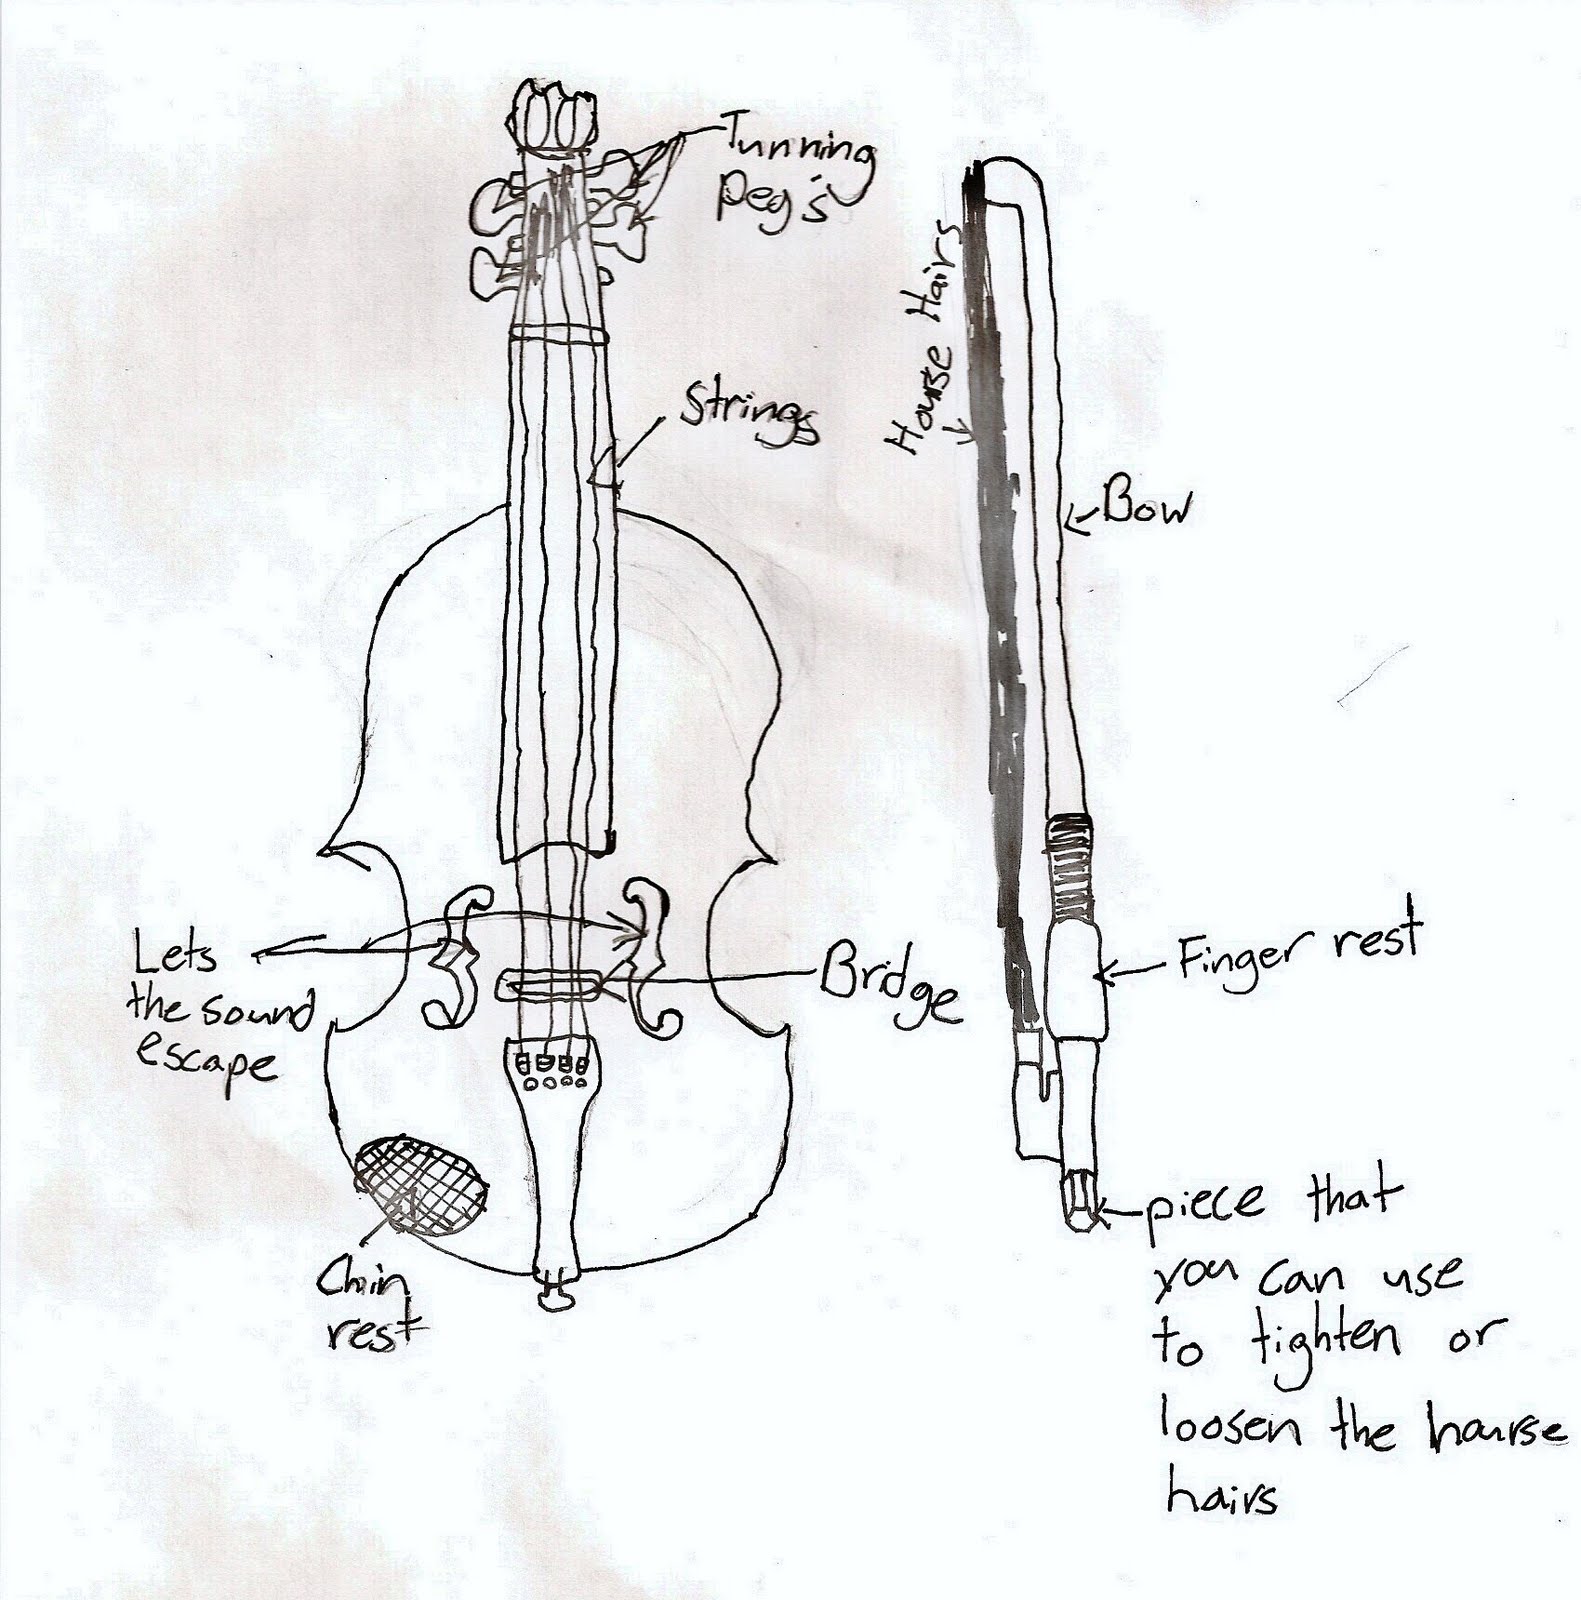 Tunning
Peg's
Strings
Hourse Hairs
Bow
Lets
the sound
escape
Bridge
Finger rest
Chin
rest
piece that
you can use
to tighten or
loosen the hourse
hairs